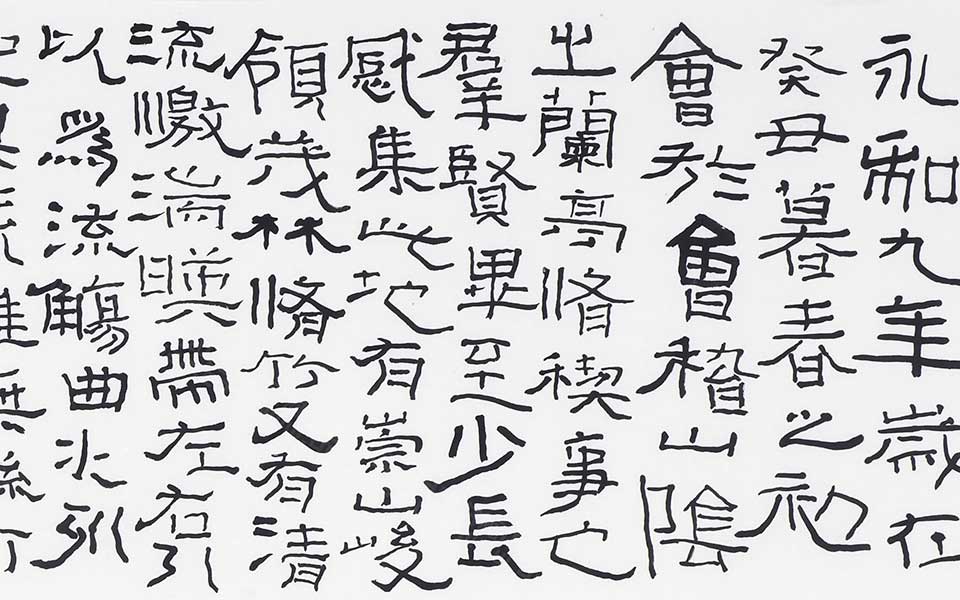 永和九年歲在
癸丑暮春之初
會於會稽山陰
之蘭亭脩禊事也
羣賢畢至少長
咸集此地有崇山峻
領茂林脩竹又有清
流激湍暎帶左右引
以為流觴曲水列